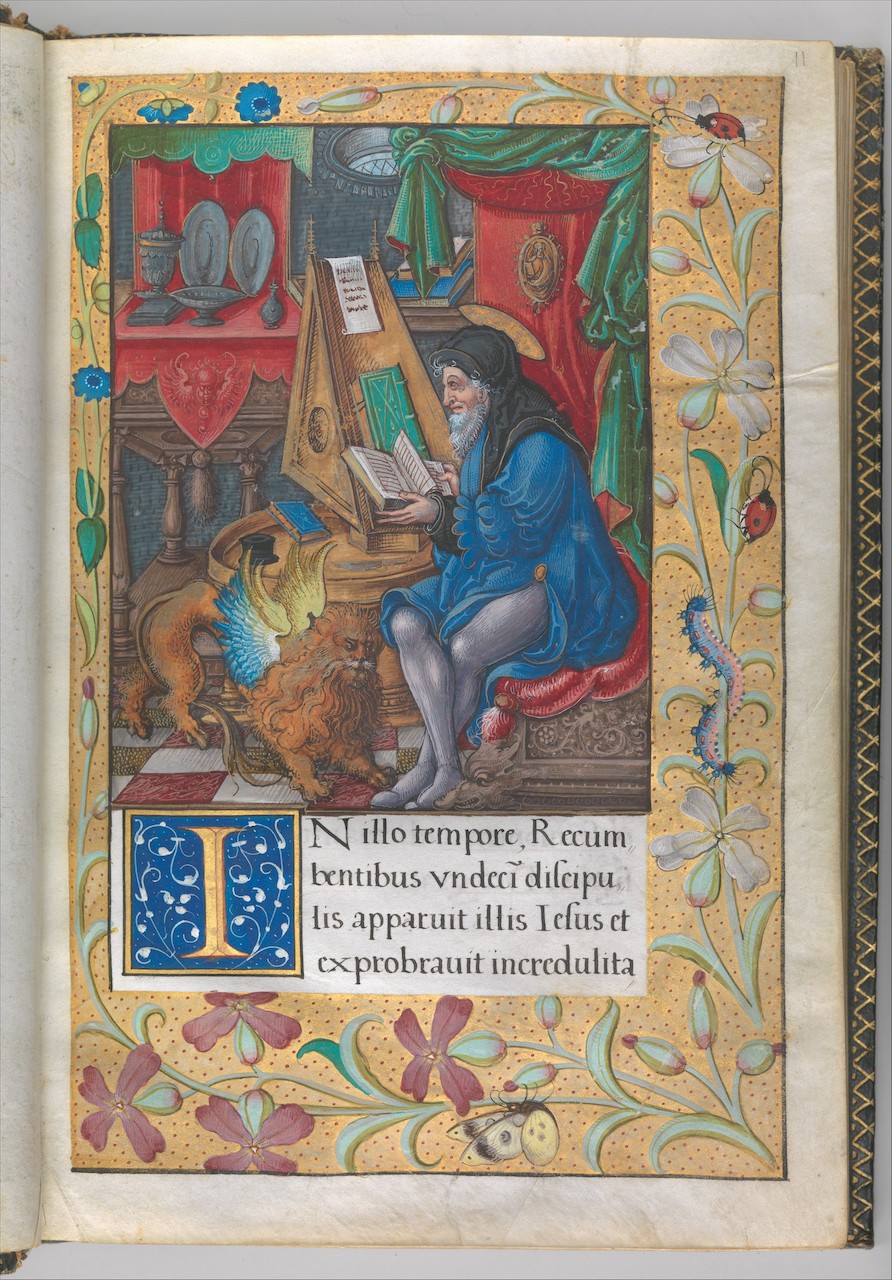 11
IN illo tempore, Recum„
bentibus vndecī diſcipu„
lis apparuit illis Ieſus et
exprobrauit incredulita